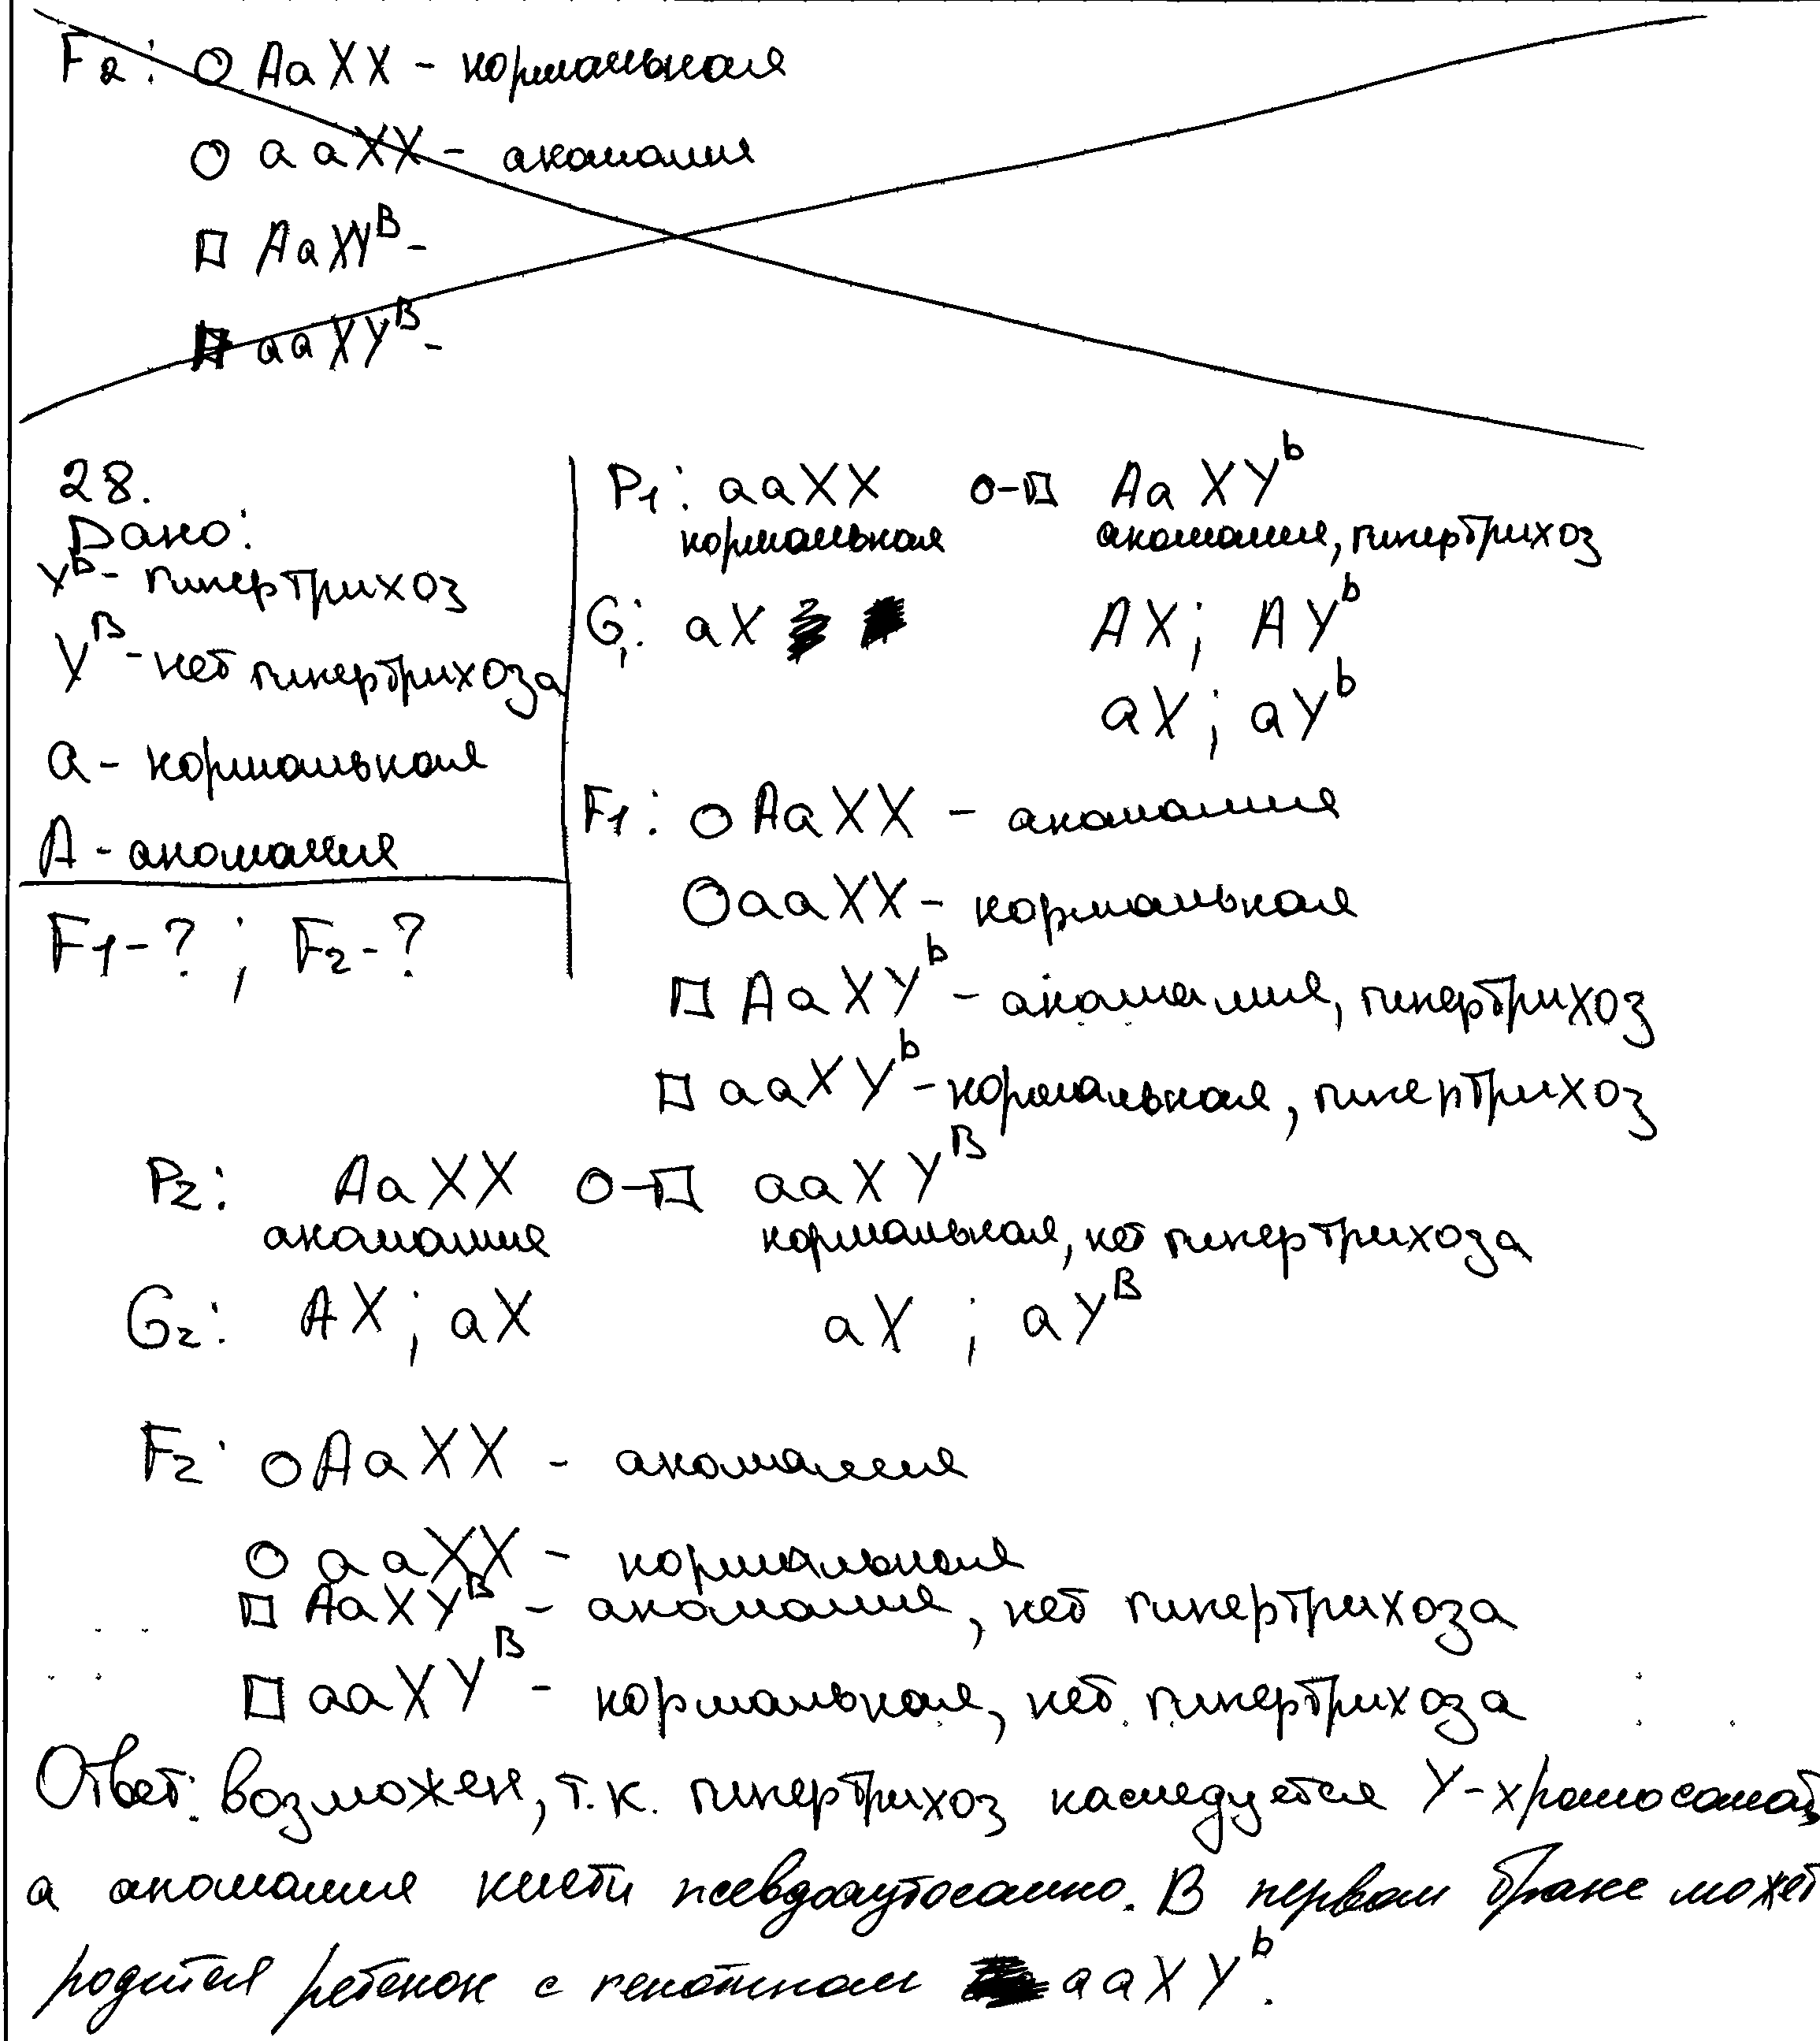 F2: ○ AaXX - нормальная
○ aaXX - аномалия
□ AaXY^B -
□ aaXY^B -
28.
Дано:
Y^b - гипертрихоз
Y^B - нет гипертрихоза
a - нормальная
A - аномалия
F1 - ? ; F2 - ?
P1: aaXX ○-□ AaXY^b
нормальная аномалия, гипертрихоз
G1: aX AX; AY^b
aX; aY^b
F1: ○ AaXX - аномалия
○ aaXX - нормальная
□ AaXY^b - аномалия, гипертрихоз
□ aaXY^b - нормальная, гипертрихоз
P2: AaXX ○-□ aaXY^B
аномалия нормальная, нет гипертрихоза
G2: AX; aX aX ; aY^B
F2: ○ AaXX - аномалия
○ aaXX - нормальная
□ AaXY^B - аномалия, нет гипертрихоза
□ aaXY^B - нормальная, нет гипертрихоза
Ответ: возможен, т.к. гипертрихоз наследуется Y-хромосомой,
а аномалия кисти псевдоаутосомно. В первом браке может
родится ребенок с генотипом aaXY^b.